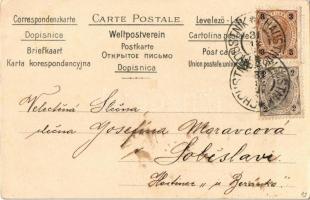 Correspondenzkarte
Dopisnice
Briefkaart
Karta korespondencyjna
CARTE POSTALE.
Weltpostverein
Postkarte
ОТКРЫТОЕ ПИСЬМО
Dopisnica
Levelező-L
Cartolina p
Post car
Union postale univ
3
2
Veletěná Slečna
slečna Josefína Moravcová
Soběslavi
Hostinec „u Beránka"